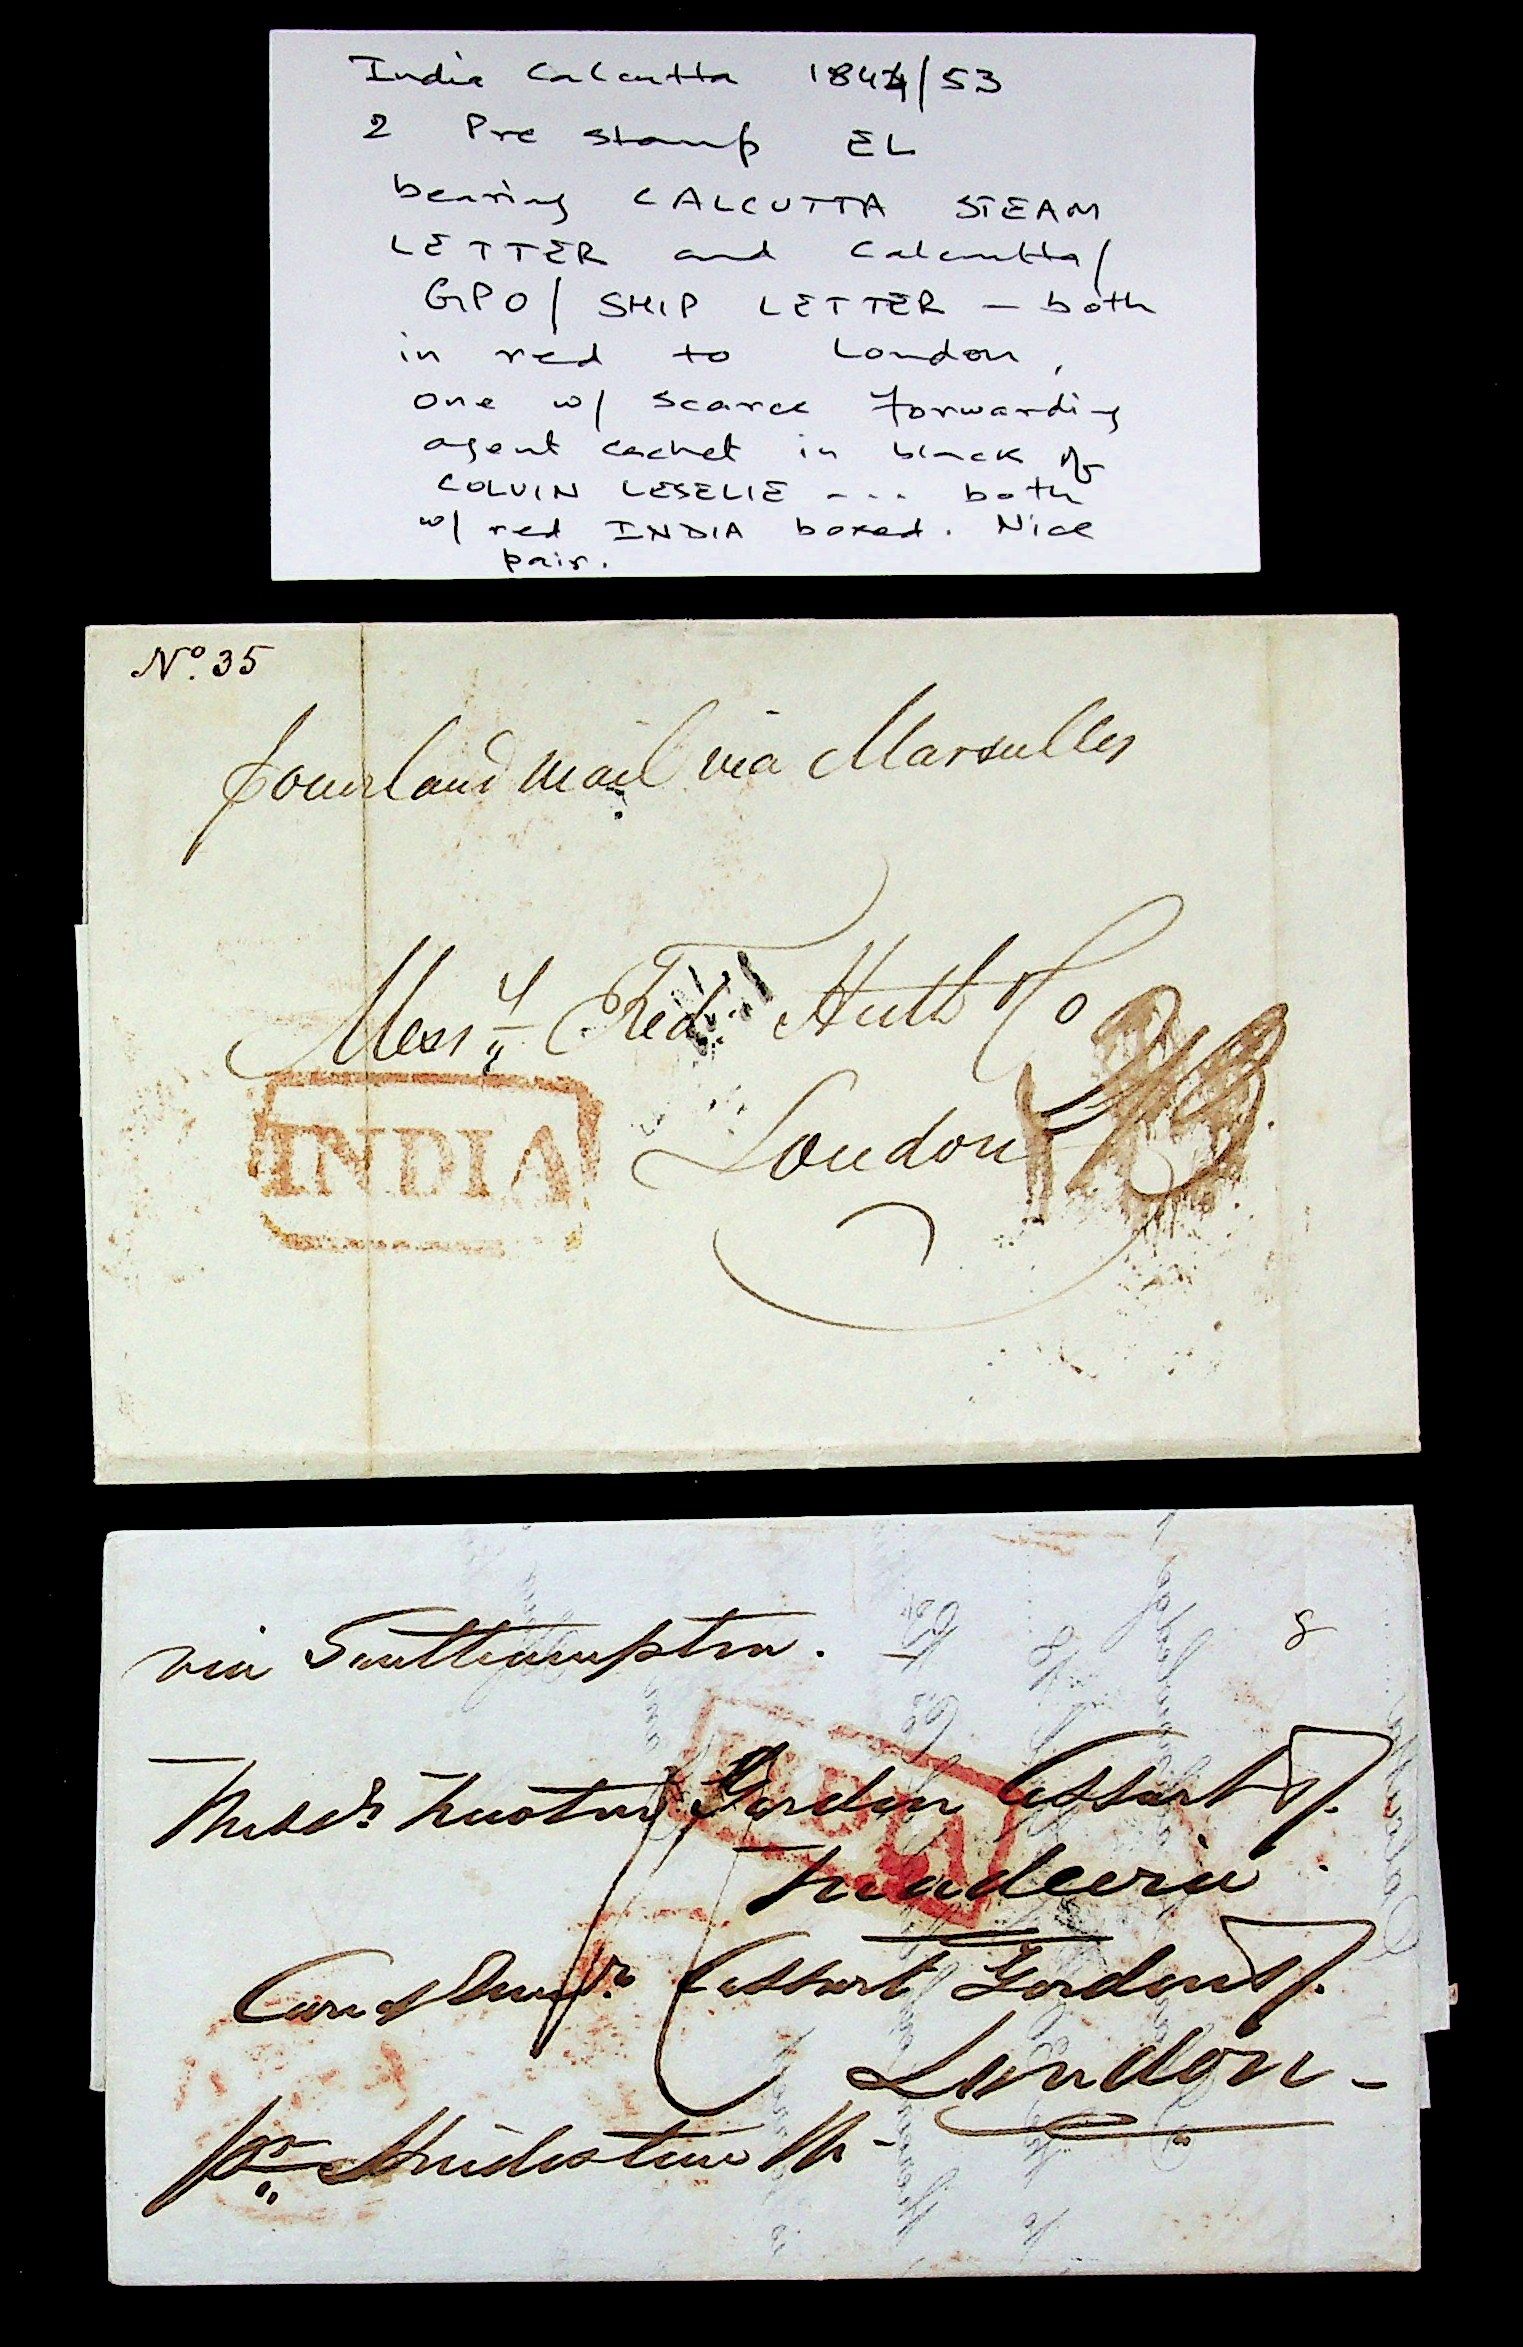 India Calcutta 1844/53
2 Pre stamp EL
bearing CALCUTTA STEAM
LETTER and Calcutta/
GPO/ SHIP LETTER — both
in red to London,
one w/ scarce forwarding
agent cachet in black of
COLVIN LESELIE --- both
w/ red INDIA boxed. Nice
pair.
No. 35
overland mail via Marseilles
Messrs Fredk Huth & Co
London
INDIA
via Southampton.
8
Messrs Newton Gordon Cossart & Co.
INDIA
Madeira
Care of Messrs Cossart Gordon & Co.
London -
pr Hindostan